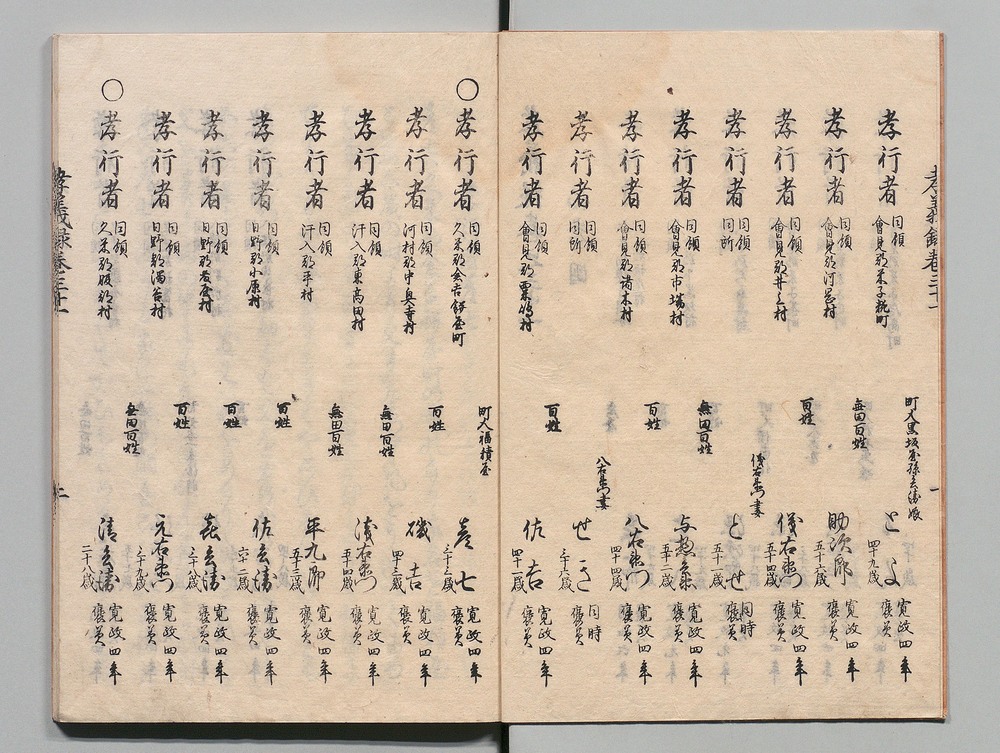 孝義録巻三十一
孝行者 同領 會見郡米子糀町 町人黒坂屋孫兵衛娘 とよ 四十九歳 寛政四年 褒美
孝行者 同領 會見郡河岡村 無田百姓 助次郎 五十六歳 寛政四年 褒美
孝行者 同領 會見郡井上村 百姓 儀右衛門 五十四歳 寛政四年 褒美
孝行者 同領 同所 儀右衛門妻 とせ 五十一歳 同時 褒美
孝行者 同領 會見郡市場村 無田百姓 与惣兵衛 五十二歳 寛政四年 褒美
孝行者 同領 會見郡諸木村 百姓 八右衛門 四十四歳 寛政四年 褒美
孝行者 同領 同所 八右衛門妻 せき 三十六歳 同時 褒美
孝行者 同領 會見郡粟嶋村 百姓 佐吉 四十一歳 寛政四年 褒美
一
○孝行者 同領 久米郡倉吉 町 町人福積屋 七 三十三歳 寛政四年 褒美
孝行者 同領 河村郡中興寺村 百姓 磯吉 四十三歳 寛政四年 褒美
孝行者 同領 汗入郡東高田村 無田百姓 浅右衛門 五十四歳 寛政四年 褒美
孝行者 同領 汗入郡平村 無田百姓 平九郎 五十三歳 寛政四年 褒美
孝行者 同領 日野郡小原村 百姓 佐兵衛 六十二歳 寛政四年 褒美
孝行者 同領 日野郡 村 百姓 喜兵衛 三十八歳 寛政四年 褒美
孝行者 同領 日野郡濁谷村 百姓 元右衛門 三十九歳 寛政四年 褒美
○孝行者 同領 久米郡服部村 無田百姓 清兵衛 二十八歳 寛政四年 褒美
孝義録巻三十一
二